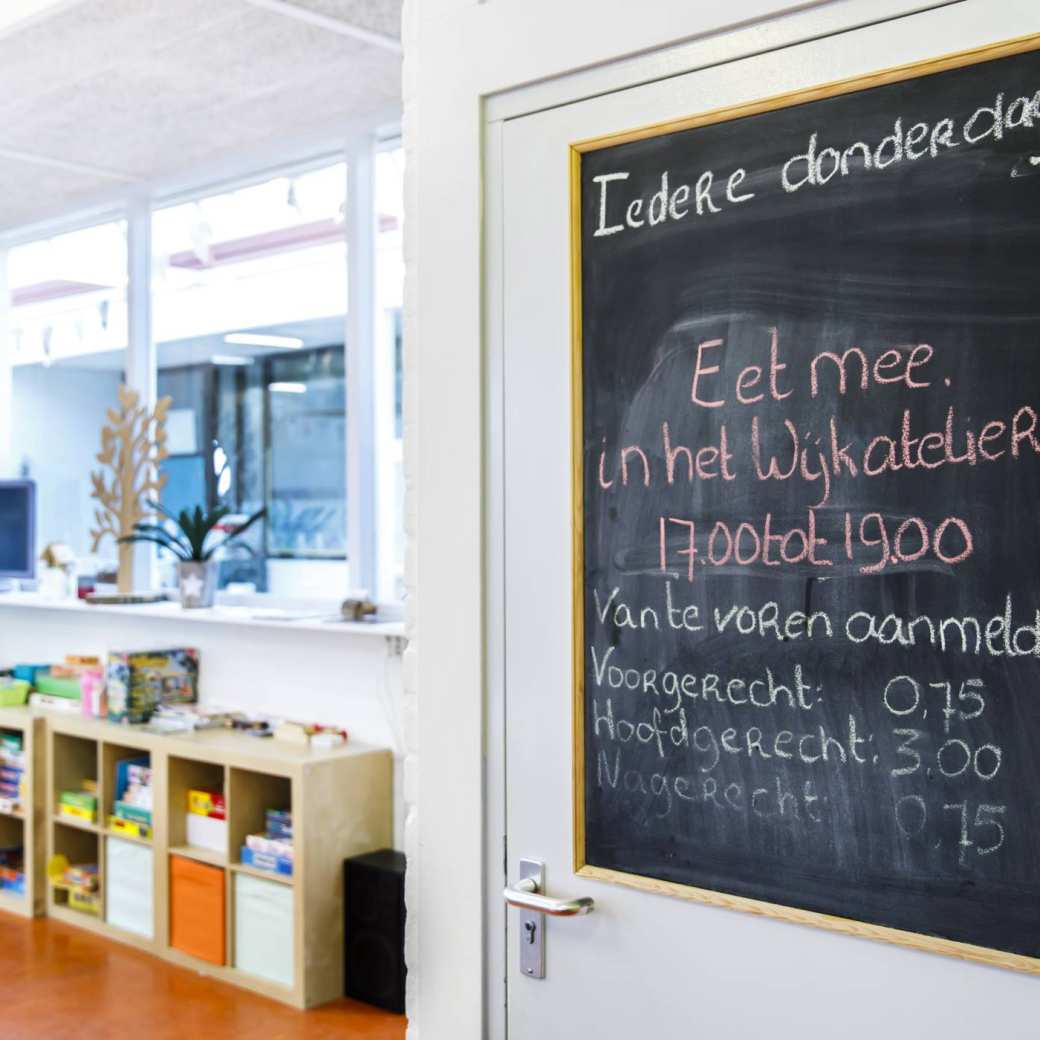 Iedere donderda
Eet mee.
in het Wijkatelier
17.00 tot 19.00
Van te voren aanmeld
Voorgerecht: 0,75
Hoofdgerecht: 3.00
Nagerecht: 0,75